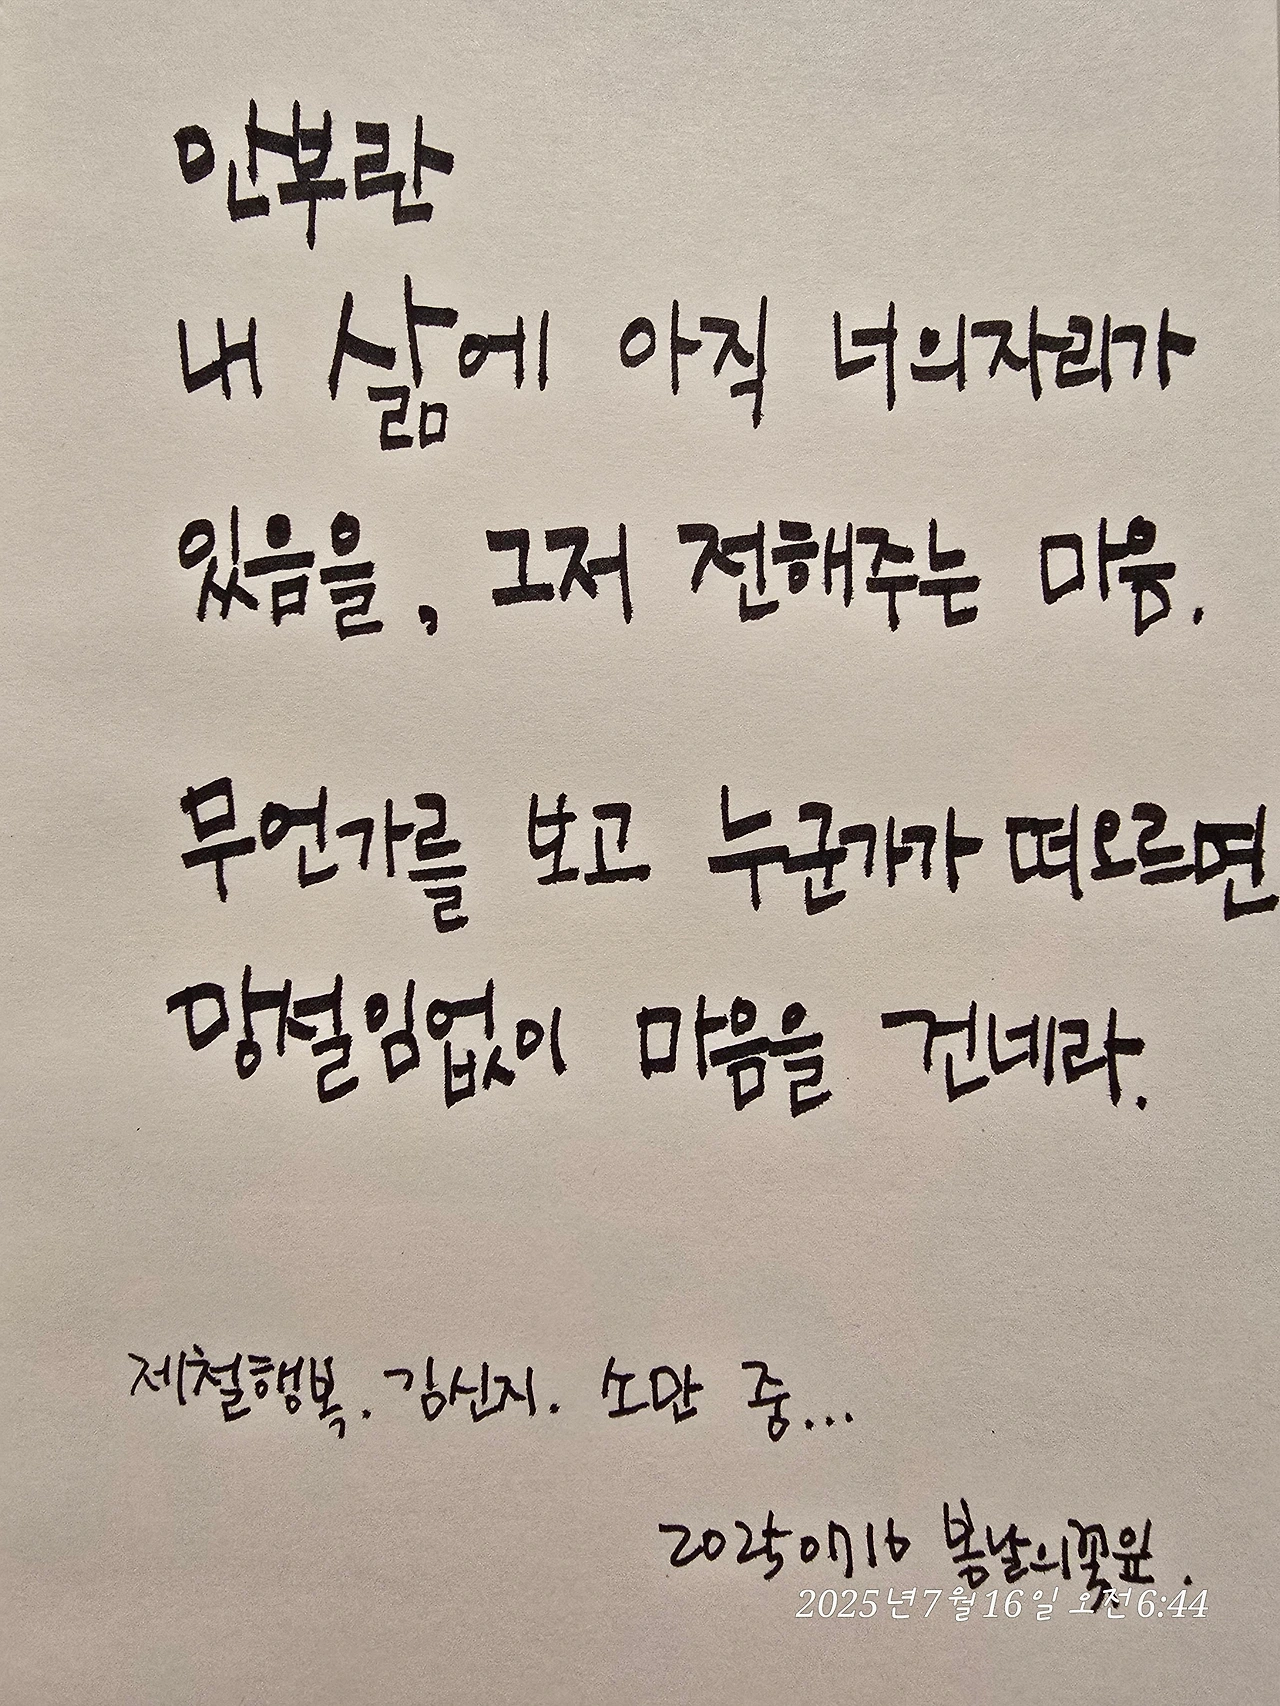 안부란
내 삶에 아직 너의자리가
있음을, 그저 전해주는 마음.
무언가를 보고 누군가가 떠오르면
망설임없이 마음을 건네라.
제철행복. 김신지. 소만 중...
20250716 봄날의꽃잎.
2025년 7월 16일 오전 6:44